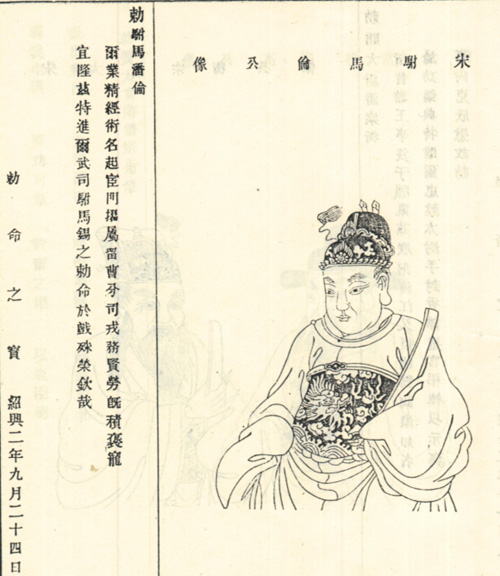 宋駙馬倫公像
勅駙馬潘倫
爾業精經術名起宦門擢屬留曹分司戎務賢勞旣積褒寵
宜隆茲特進爾武司駙馬錫之勅命於戲殊榮欽哉
勅命之寶 紹興二年九月二十四日